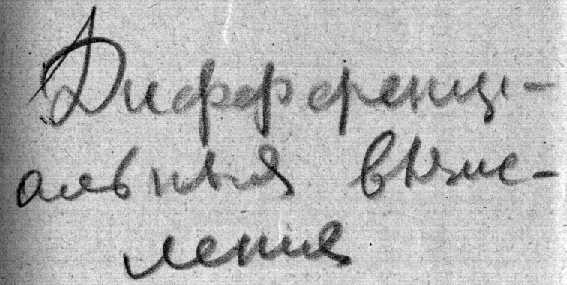 Дифференці-
альныя вычис-
ления